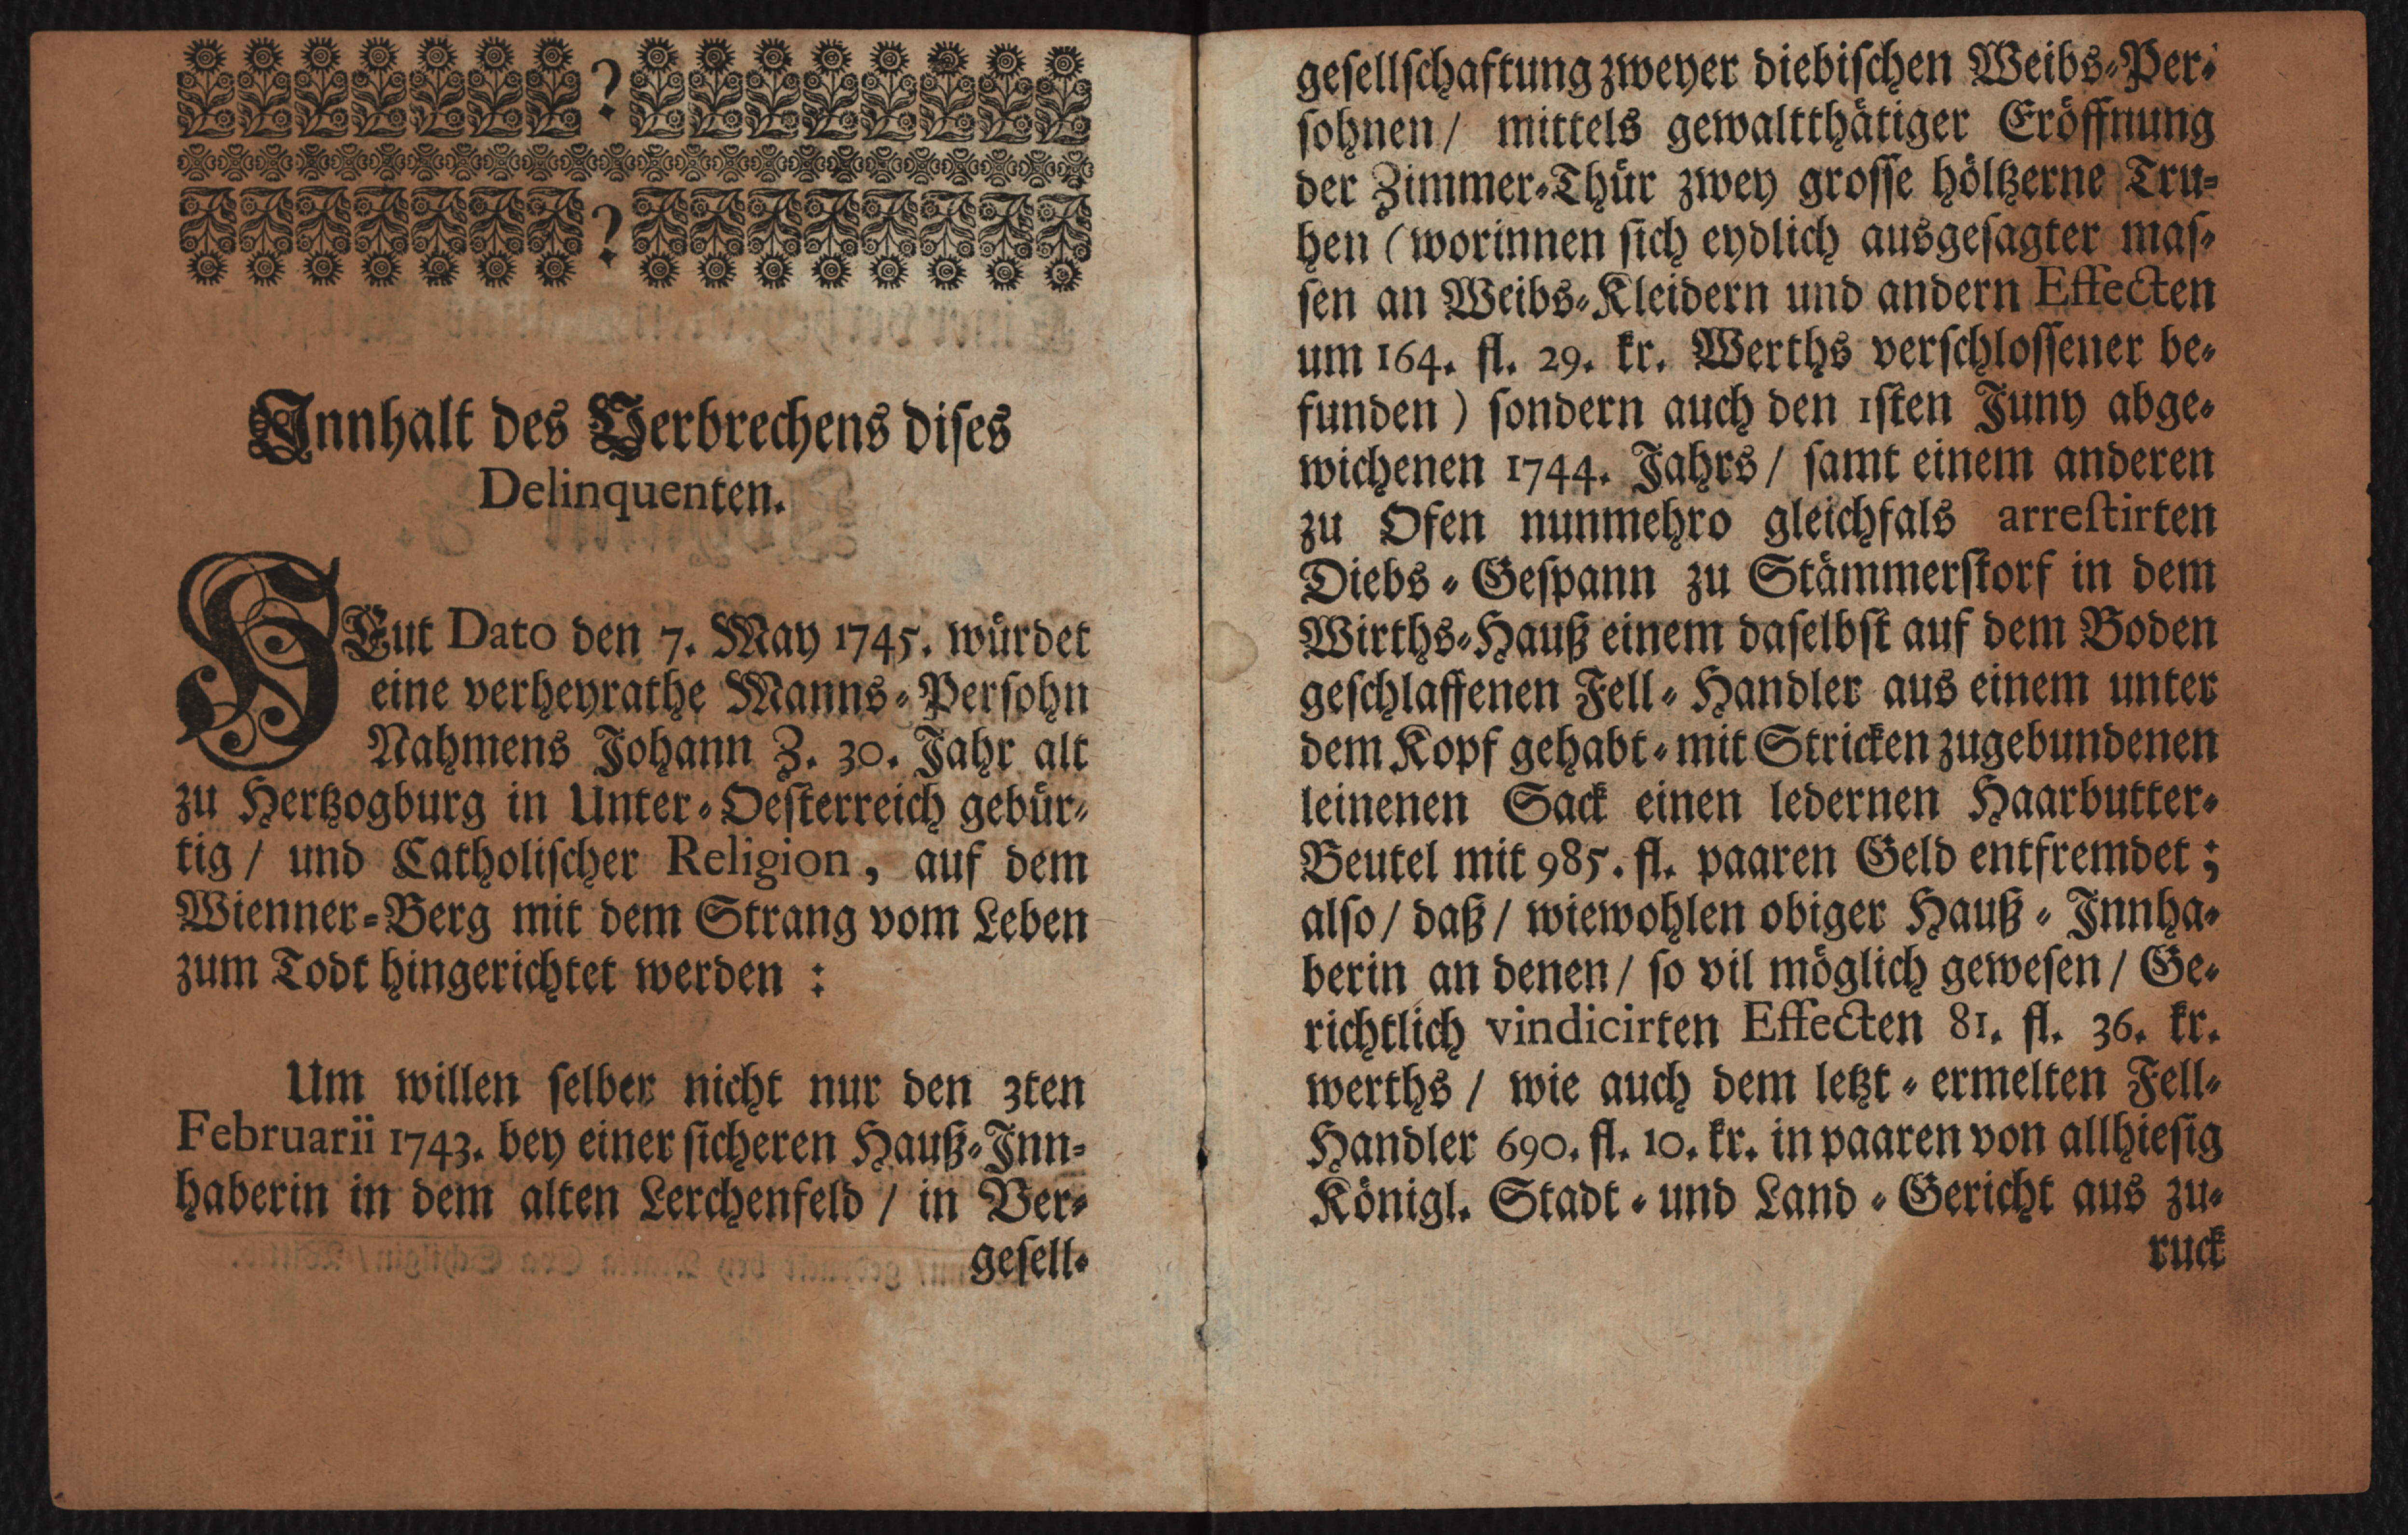 ?
?
Innhalt des Verbrechens dises
Delinquenten.
HEut Dato den 7. May 1745. würdet
eine verheyrathe Manns-Persohn
Nahmens Johann Z. 30. Jahr alt
zu Hertzogburg in Unter-Oesterreich gebür-
tig / und Catholischer Religion, auf dem
Wienner-Berg mit dem Strang vom Leben
zum Todt hingerichtet werden :
Um willen selber nicht nur den 3ten
Februarii 1743. bey einer sicheren Hauß-Inn-
haberin in dem alten Lerchenfeld / in Ver-
gesell-
gesellschaftung zweyer diebischen Weibs-Per-
sohnen / mittels gewaltthätiger Eröffnung
der Zimmer-Thür zwey grosse höltzerne Tru-
hen (worinnen sich eydlich ausgesagter mas-
sen an Weibs-Kleidern und andern Effecten
um 164. fl. 29. kr. Werths verschlossener be-
funden) sondern auch den 1sten Juny abge-
wichenen 1744. Jahrs / samt einem anderen
zu Ofen nunmehro gleichfals arrestirten
Diebs-Gespann zu Stämmerstorf in dem
Wirths-Hauß einem daselbst auf dem Boden
geschlaffenen Fell-Handler aus einem unter
dem Kopf gehabt-mit Stricken zugebundenen
leinenen Sack einen ledernen Haarbutter-
Beutel mit 985. fl. paaren Geld entfremdet ;
also / daß / wiewohlen obiger Hauß-Innha-
berin an denen / so vil möglich gewesen / Ge-
richtlich vindicirten Effecten 81. fl. 36. kr.
werths / wie auch dem letzt-ermelten Fell-
Handler 690. fl. 10. kr. in paaren von allhiesig
Königl. Stadt- und Land-Gericht aus zu-
ruck